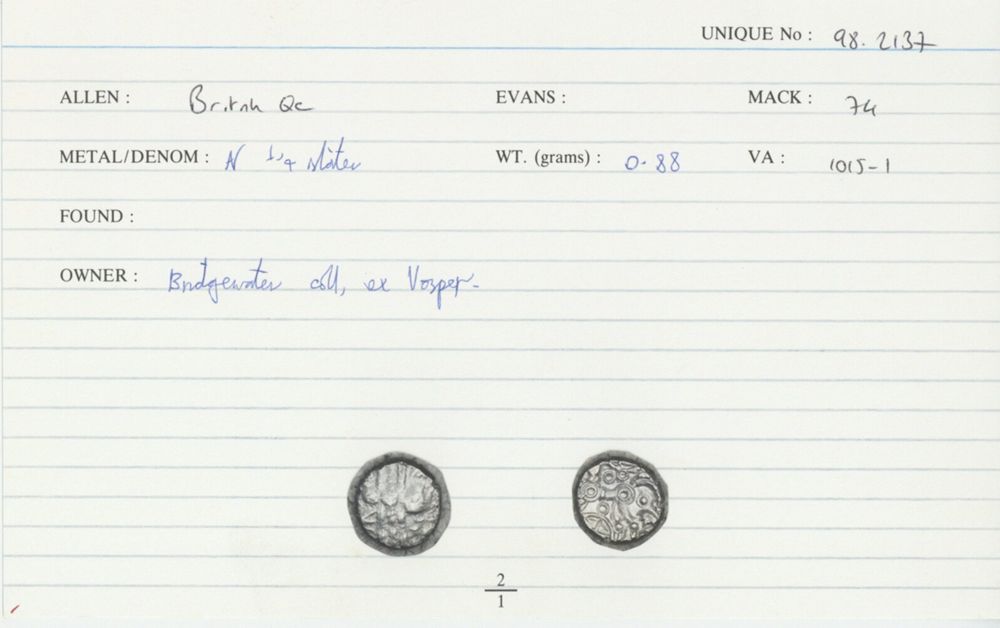 UNIQUE No : 98.2137
ALLEN : British Qc EVANS : MACK : 74
METAL/DENOM : N 1/4 stater WT. (grams) : 0.88 VA : 1015-1
FOUND :
OWNER : Bridgewater coll, ex Vosper.
2
1